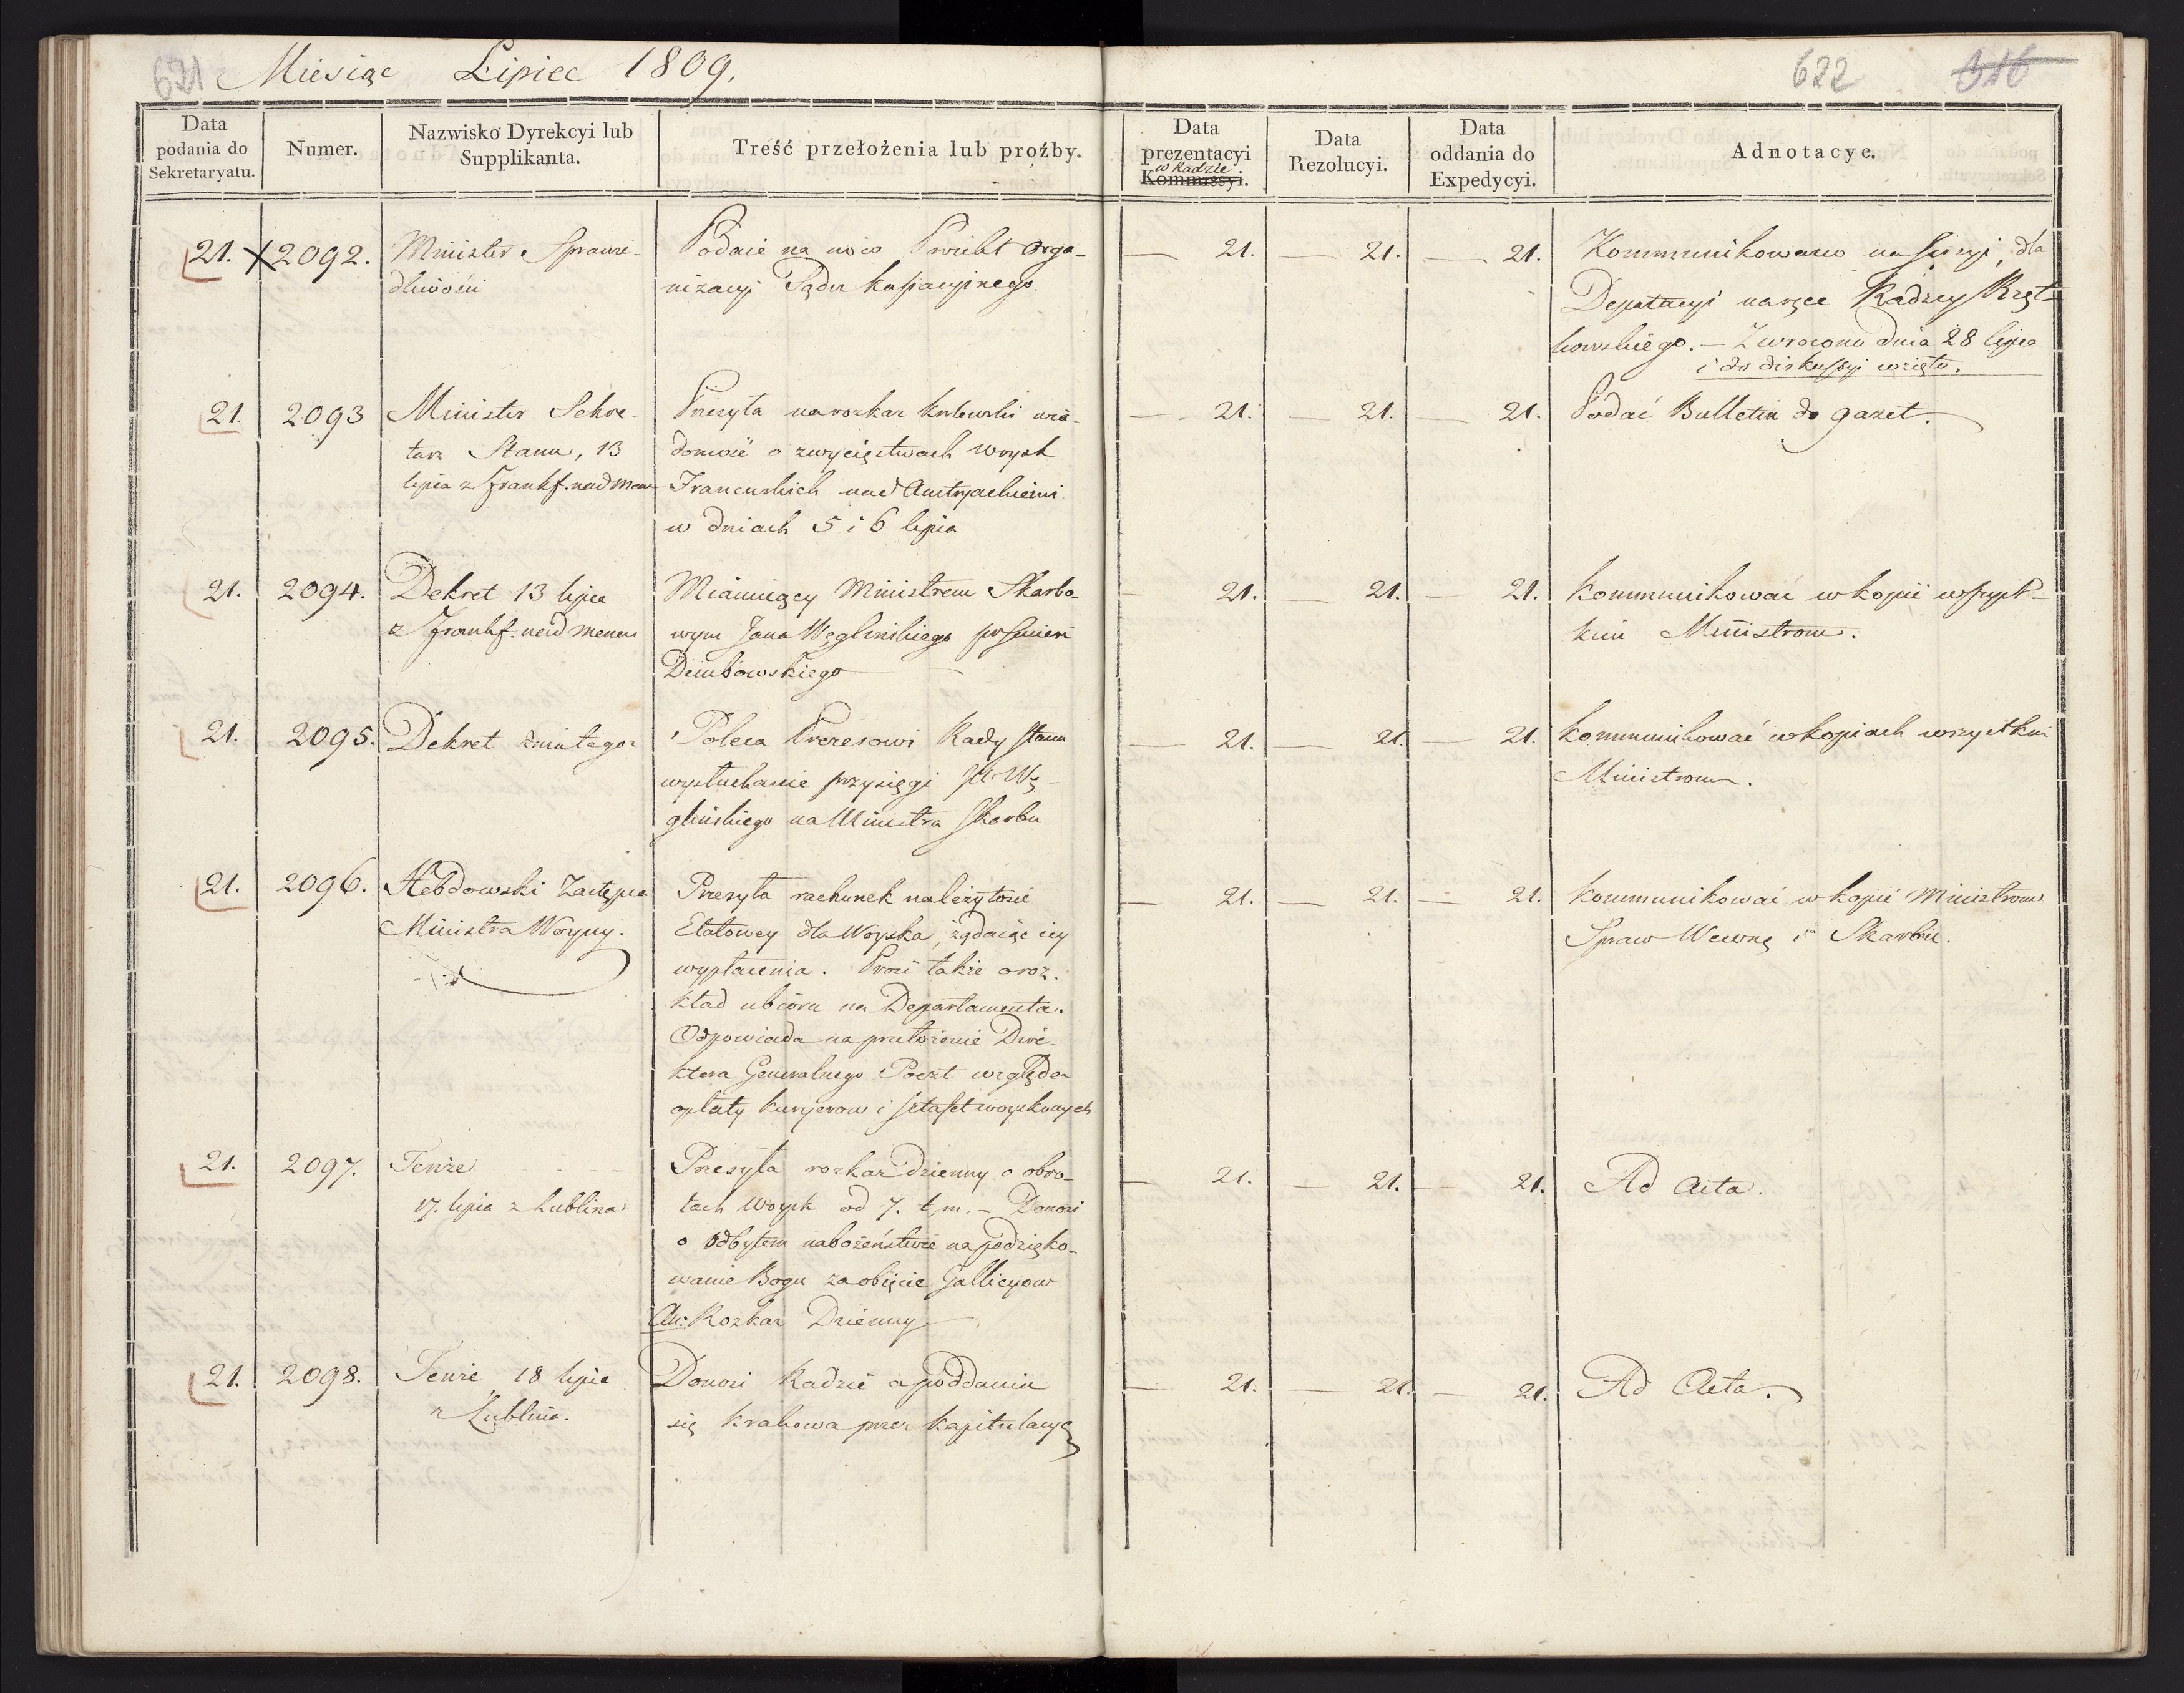 621 Miesiąc Lipiec 1809.
622 316
Data podania do Sekretaryatu.
Numer.
Nazwisko Dyrekcyi lub Supplikanta.
Treść przełożenia lub proźby.
Data prezentacyi w Radzie Kommissyi.
Data Rezolucyi.
Data oddania do Expedycyi.
Adnotacye.
21. X 2092. Minister Sprawie-
dliwości
Podaie na nowo Proiekt orga-
nizacyi Sądu kassacyjnego.
21. 21. 21.
Kommunikowano na sessyi, dla
Deputacyi na ręce Radzcy
Zwrocono dnia 28 lipca
i do diskussyi wzięto.
21. 2093 Minister Sekre-
tarz Stanu, 13
lipca z Frankf. nad Mene
Przesyła na rozkaz krolewski wia-
domość o zwycięstwach woysk
Francuskich nad Austryackiemi
w dniach 5 i 6 lipca
21. 21. 21.
Podać Bulletin do gazet.
21. 2094. Dekret 13 lipca
z Frankf. nad Menem
Mianuiący Ministrem Skarbo-
wym Jana Węglinskiego po śmierci
Dembowskiego
21. 21. 21.
Kommunikować w kopii wszyst-
kim Ministrom.
21. 2095. Dekret z dnia tegoż
Poleca Prezesowi Rady Stanu
wysłuchanie przysięgi JW Wę-
glinskiego na Ministra Skarbu
21. 21. 21.
Kommunikować w kopiach wszystkim
Ministrom.
21. 2096. Hebdowski Zastępca
Ministra Woyny.
Przesyła rachunek należytości
Etatowey dla Woyska, żądaiąc iey
wypłacenia. Prosi także o roz-
kład ubioru na Departamenta.
Odpowiada na przełożenie Dire-
ktora Generalnego Poczt względem
opłaty kuryerow i sztafet woyskowych
21. 21. 21.
Kommunikować w kopii Ministrom
Spraw Wewnę i Skarbu.
21. 2097. Tenże
17. lipca z Lublina
Przesyła rozkaz Dzienny o obro-
tach Woysk od 7. t. m. - Donosi
o odbytem nabożeństwie na podzięko-
wanie Bogu za obięcie Gallicyow
An: Rozkaz Dzienny
21. 21. 21.
Ad Acta.
21. 2098. Tenże 18 lipca
z Lublina.
Donosi Radzie o poddaniu
się Krakowa przez kapitulacyę
21. 21. 21.
Ad Acta.